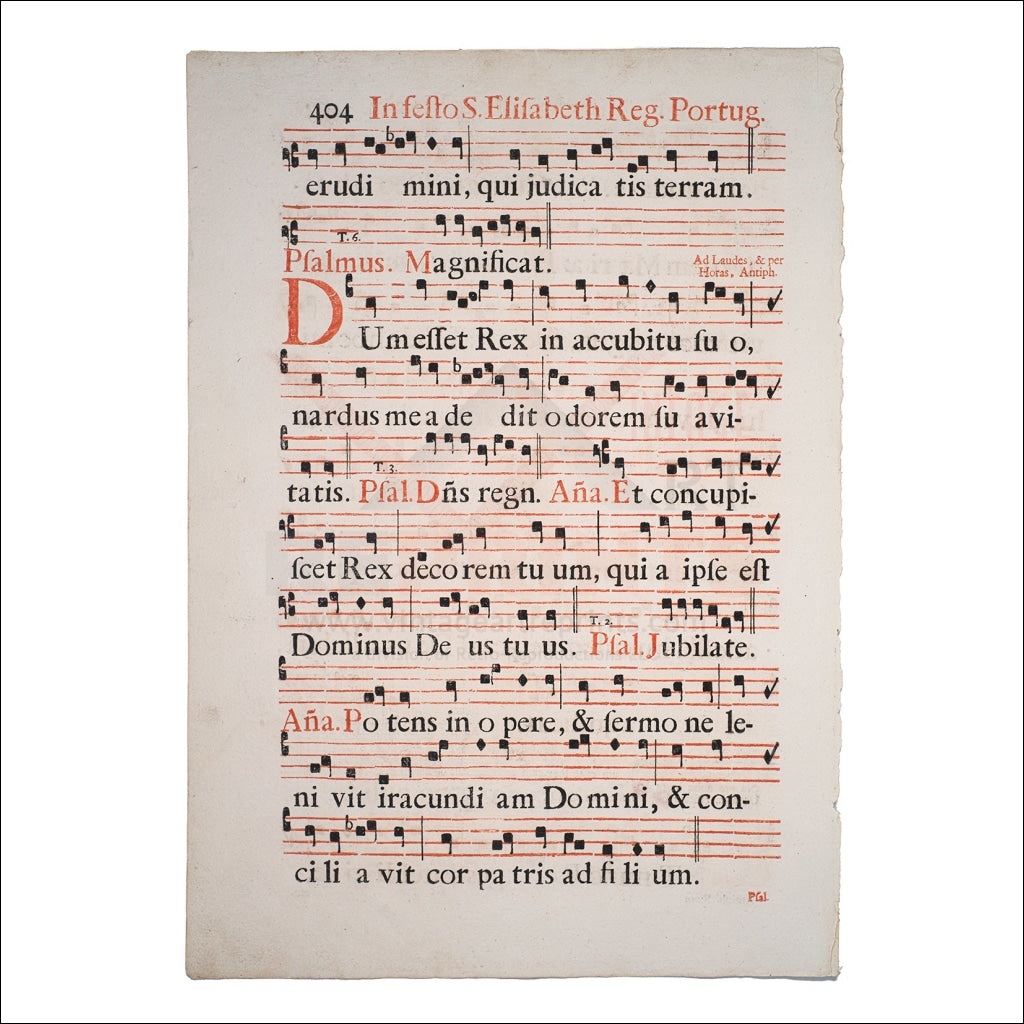 404 In feſto S. Eliſabeth Reg. Portug.
erudi mini, qui judica tis terram.
T. 6.
Pſalmus. Magnificat.
Ad Laudes, & per
Horas, Antiph.
DUm eſſet Rex in accubitu ſu o,
nardus me a de dit o dorem ſu avi-
T. 3.
ta tis. Pſal. Dñs regn. Aña. Et concupi-
ſcet Rex deco rem tu um, qui a ipſe eſt
T. 2.
Dominus De us tu us. Pſal. Jubilate.
Aña. Po tens in o pere, & ſermo ne le-
ni vit iracundi am Do mi ni, & con-
ci li a vit cor pa tris ad fi li um.
Pſal.